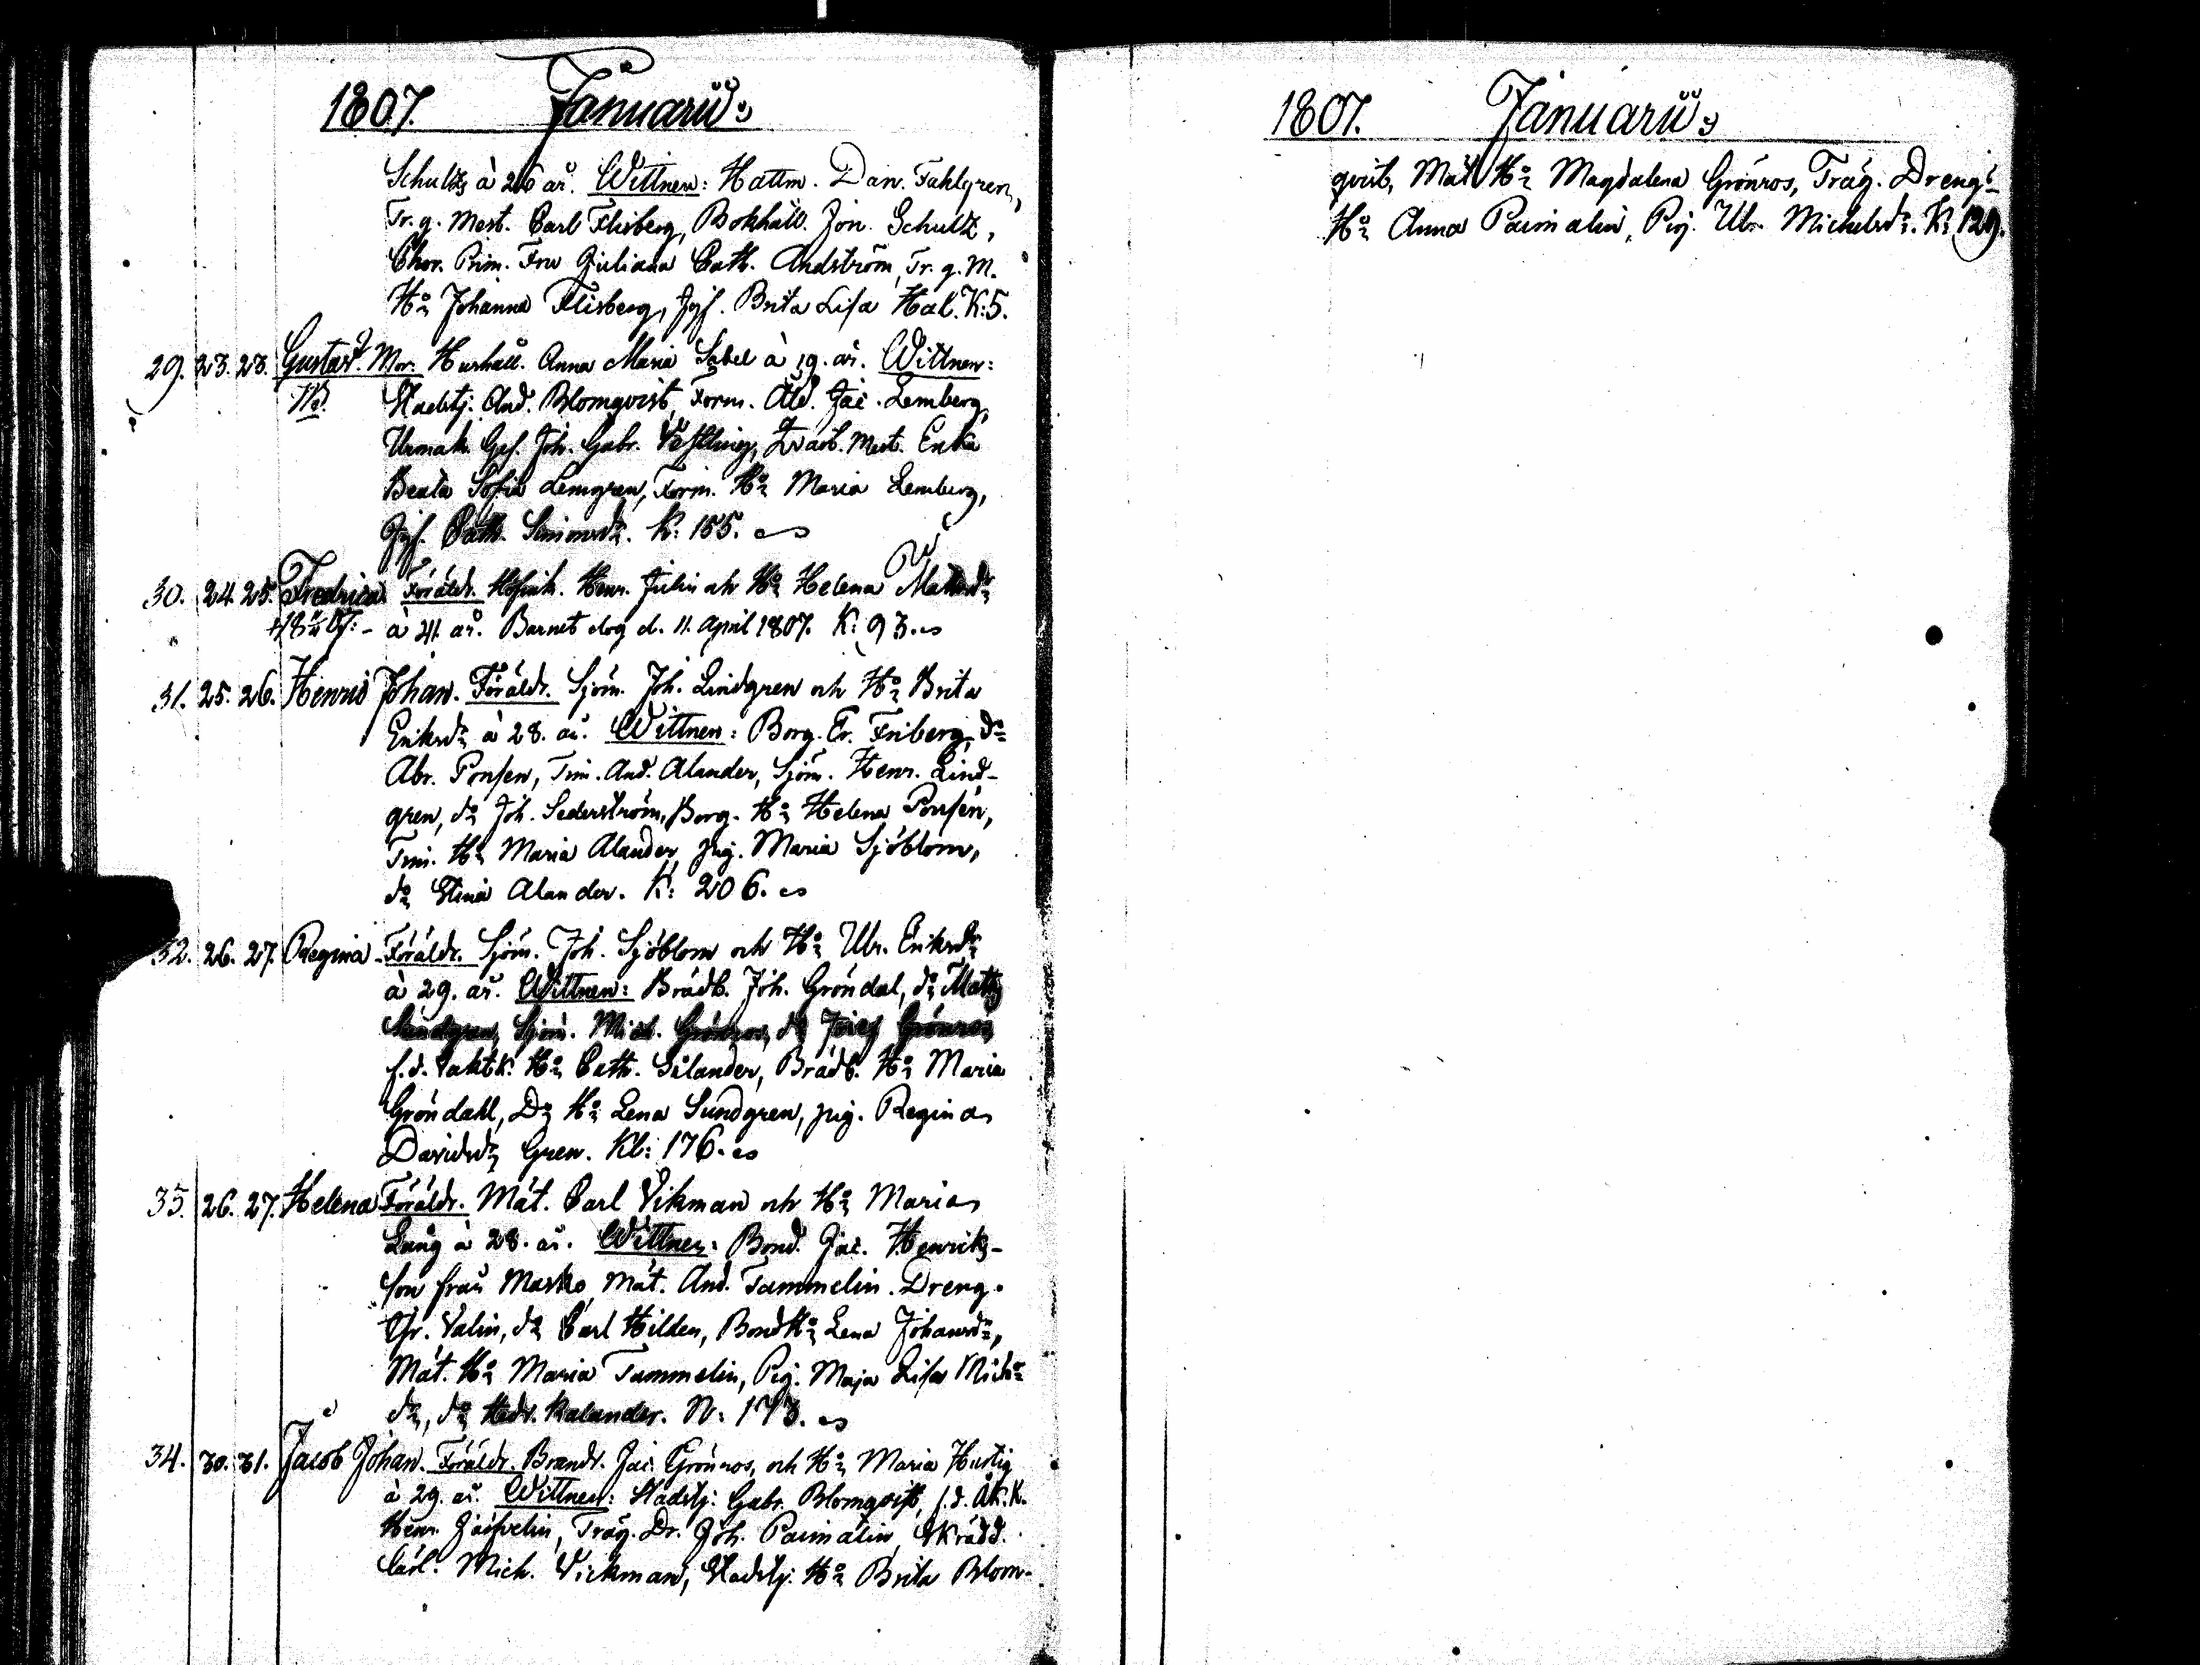 1807. Januarii:
Schultz à 26 år. Wittnen: Hattm. Dan. Fahlgren,
Tr. g. Mest. Carl Flisberg, Bokhåll. Jon. Schultz,
Chor. Prim. Fru Juliana Cath. Andström, Tr. g. M.
H:u Johanna Flisberg, Jgf. Brita Lisa Hal. K: 5.
29. 23. 23. Gustaf. Mor. Hushåll. Anna Maria Sabel à 19. år. Wittnen:
Stadstj. And. Blomqvist, Form. Åld. Jac. Lemberg,
Urmak. Ges. Joh. Gabr. Mest. Enka
Beata Sofia Lemgren, Form. H:u Maria Lemberg,
Jgf. Cath. Simonsd:r. K: 155.
30. 24. 25. Fredrica Föräldr. Henr. Julin och H:u Helena Mattsd:r
à 41. år. Barnet dog d. 11. April 1807. K: 93.
31. 25. 26. Henric Johan. Föräldr. Sjöm. Joh. Lindgren och H:u Brita
Eriksd:r à 28. år. Wittnen: Borg. Er. Friberg, d:o
Abr. Ponsen, Tim. And. Alander, Sjöm. Henr. Lind-
gren, d:o Joh. Sederström, Borg. H:u Helena Ponsén,
Tim. H:u Maria Alander, pig. Maria Sjöblom,
d:o Stina Alander. K: 206.
32. 26. 27. Regina Föräldr. Sjöm. Joh. Sjöblom och H:u Ulr. Eriksd:r
à 29. år. Wittnen: Brädb. Joh. Gröndal, d:o Matts
Sundgren, Sjöm. Mich. Grönroos, d:o Grönroos
f. d. Vaktk. H:u Cath. Silander, Brädb. H:u Maria
Gröndahl, D:o H:u Lena Sundgren, pig. Regina
Davidsd:r Gren. Kl: 176.
33. 26. 27. Helena Föräldr. Mät. Carl Vikman och H:u Maria
Lang à 28. år. Wittnen: Bond. Jac. Henriks-
son från Masko, Mät. And. Tammelin. Dreng.
Chr. Valin, d:o Carl Hilden, Bond H:u Lena Johansd:r,
Mät. H:u Maria Tammelin, Pig. Maja Lisa Mich:s
d:r, d:o Hedv. Kalander. N: 173.
34. 30. 31. Jacob Johan. Föräldr. Brandv. Jac. Grönroos, och H:u Maria Hurtig
à 29. år. Wittnen: Stadstj: Gabr. Blomqvist, f. d. Åk. K.
Henr. Träg. Dr. Joh. Paimalin, Skrädd.
Lärl. Mich. Vickman, Stadstj: H:u Brita Blom-
1807. Januarii:
qvist, Mät H:u Magdalena Grönroos, Träg. Drengs
H:u Anna Paimalin, Pig. Ulr. Michelsd:r. K: 129.